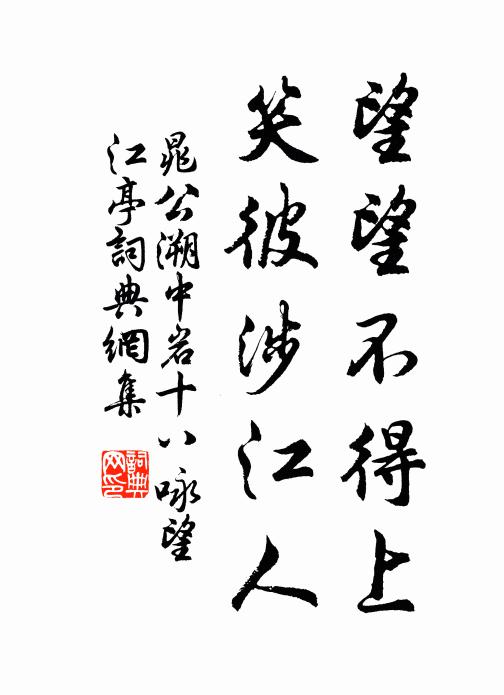 望望不得上
笑彼涉江人
晁公溯中岩十八咏望
江亭詞典網集
詞典网印